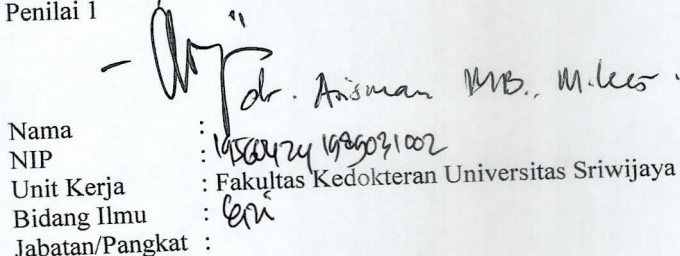 Penilai 1
dr. Arisman MB., M.Kes
Nama :
NIP : 19560424 198903 1002
Unit Kerja : Fakultas Kedokteran Universitas Sriwijaya
Bidang Ilmu : Gizi
Jabatan/Pangkat :